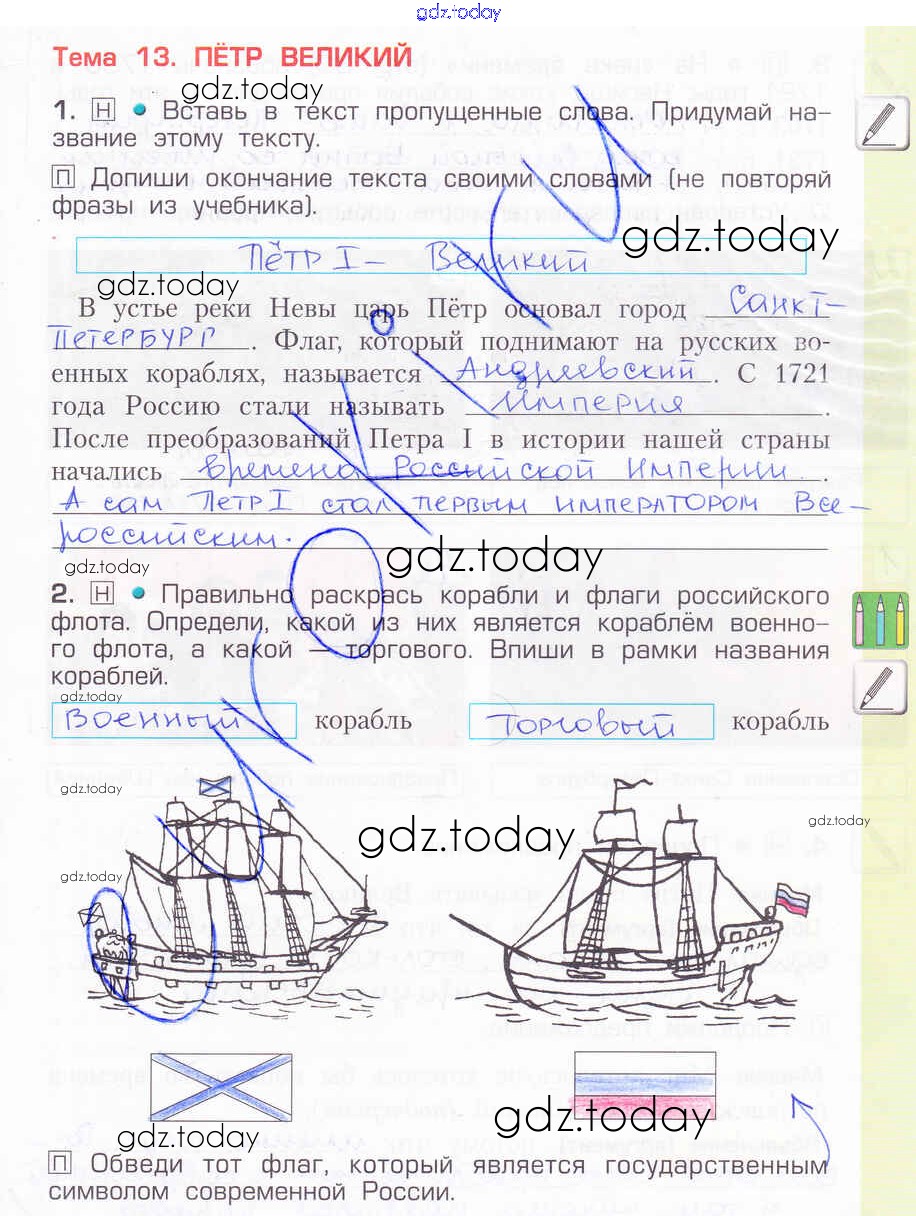 gdz.today
Тема 13. ПЁТР ВЕЛИКИЙ
gdz.today
1. Н • Вставь в текст пропущенные слова. Придумай на-
звание этому тексту.
П Допиши окончание текста своими словами (не повторяй
фразы из учебника).
gdz.today
Пётр I – Великий
gdz.today
В устье реки Невы царь Пётр основал город Санкт-
Петербург. Флаг, который поднимают на русских во-
енных кораблях, называется Андреевский. С 1721
года Россию стали называть Империя.
После преобразований Петра I в истории нашей страны
начались времена Российской Империи.
А сам Петр I стал первым императором Все-
российским.
gdz.today
gdz.today
2. Н • Правильно раскрась корабли и флаги российского
флота. Определи, какой из них является кораблём военно-
го флота, а какой — торгового. Впиши в рамки названия
кораблей.
gdz.today
Военный корабль Торговый корабль
gdz.today
gdz.today
gdz.today
gdz.today
gdz.today
gdz.today
П Обведи тот флаг, который является государственным
символом современной России.